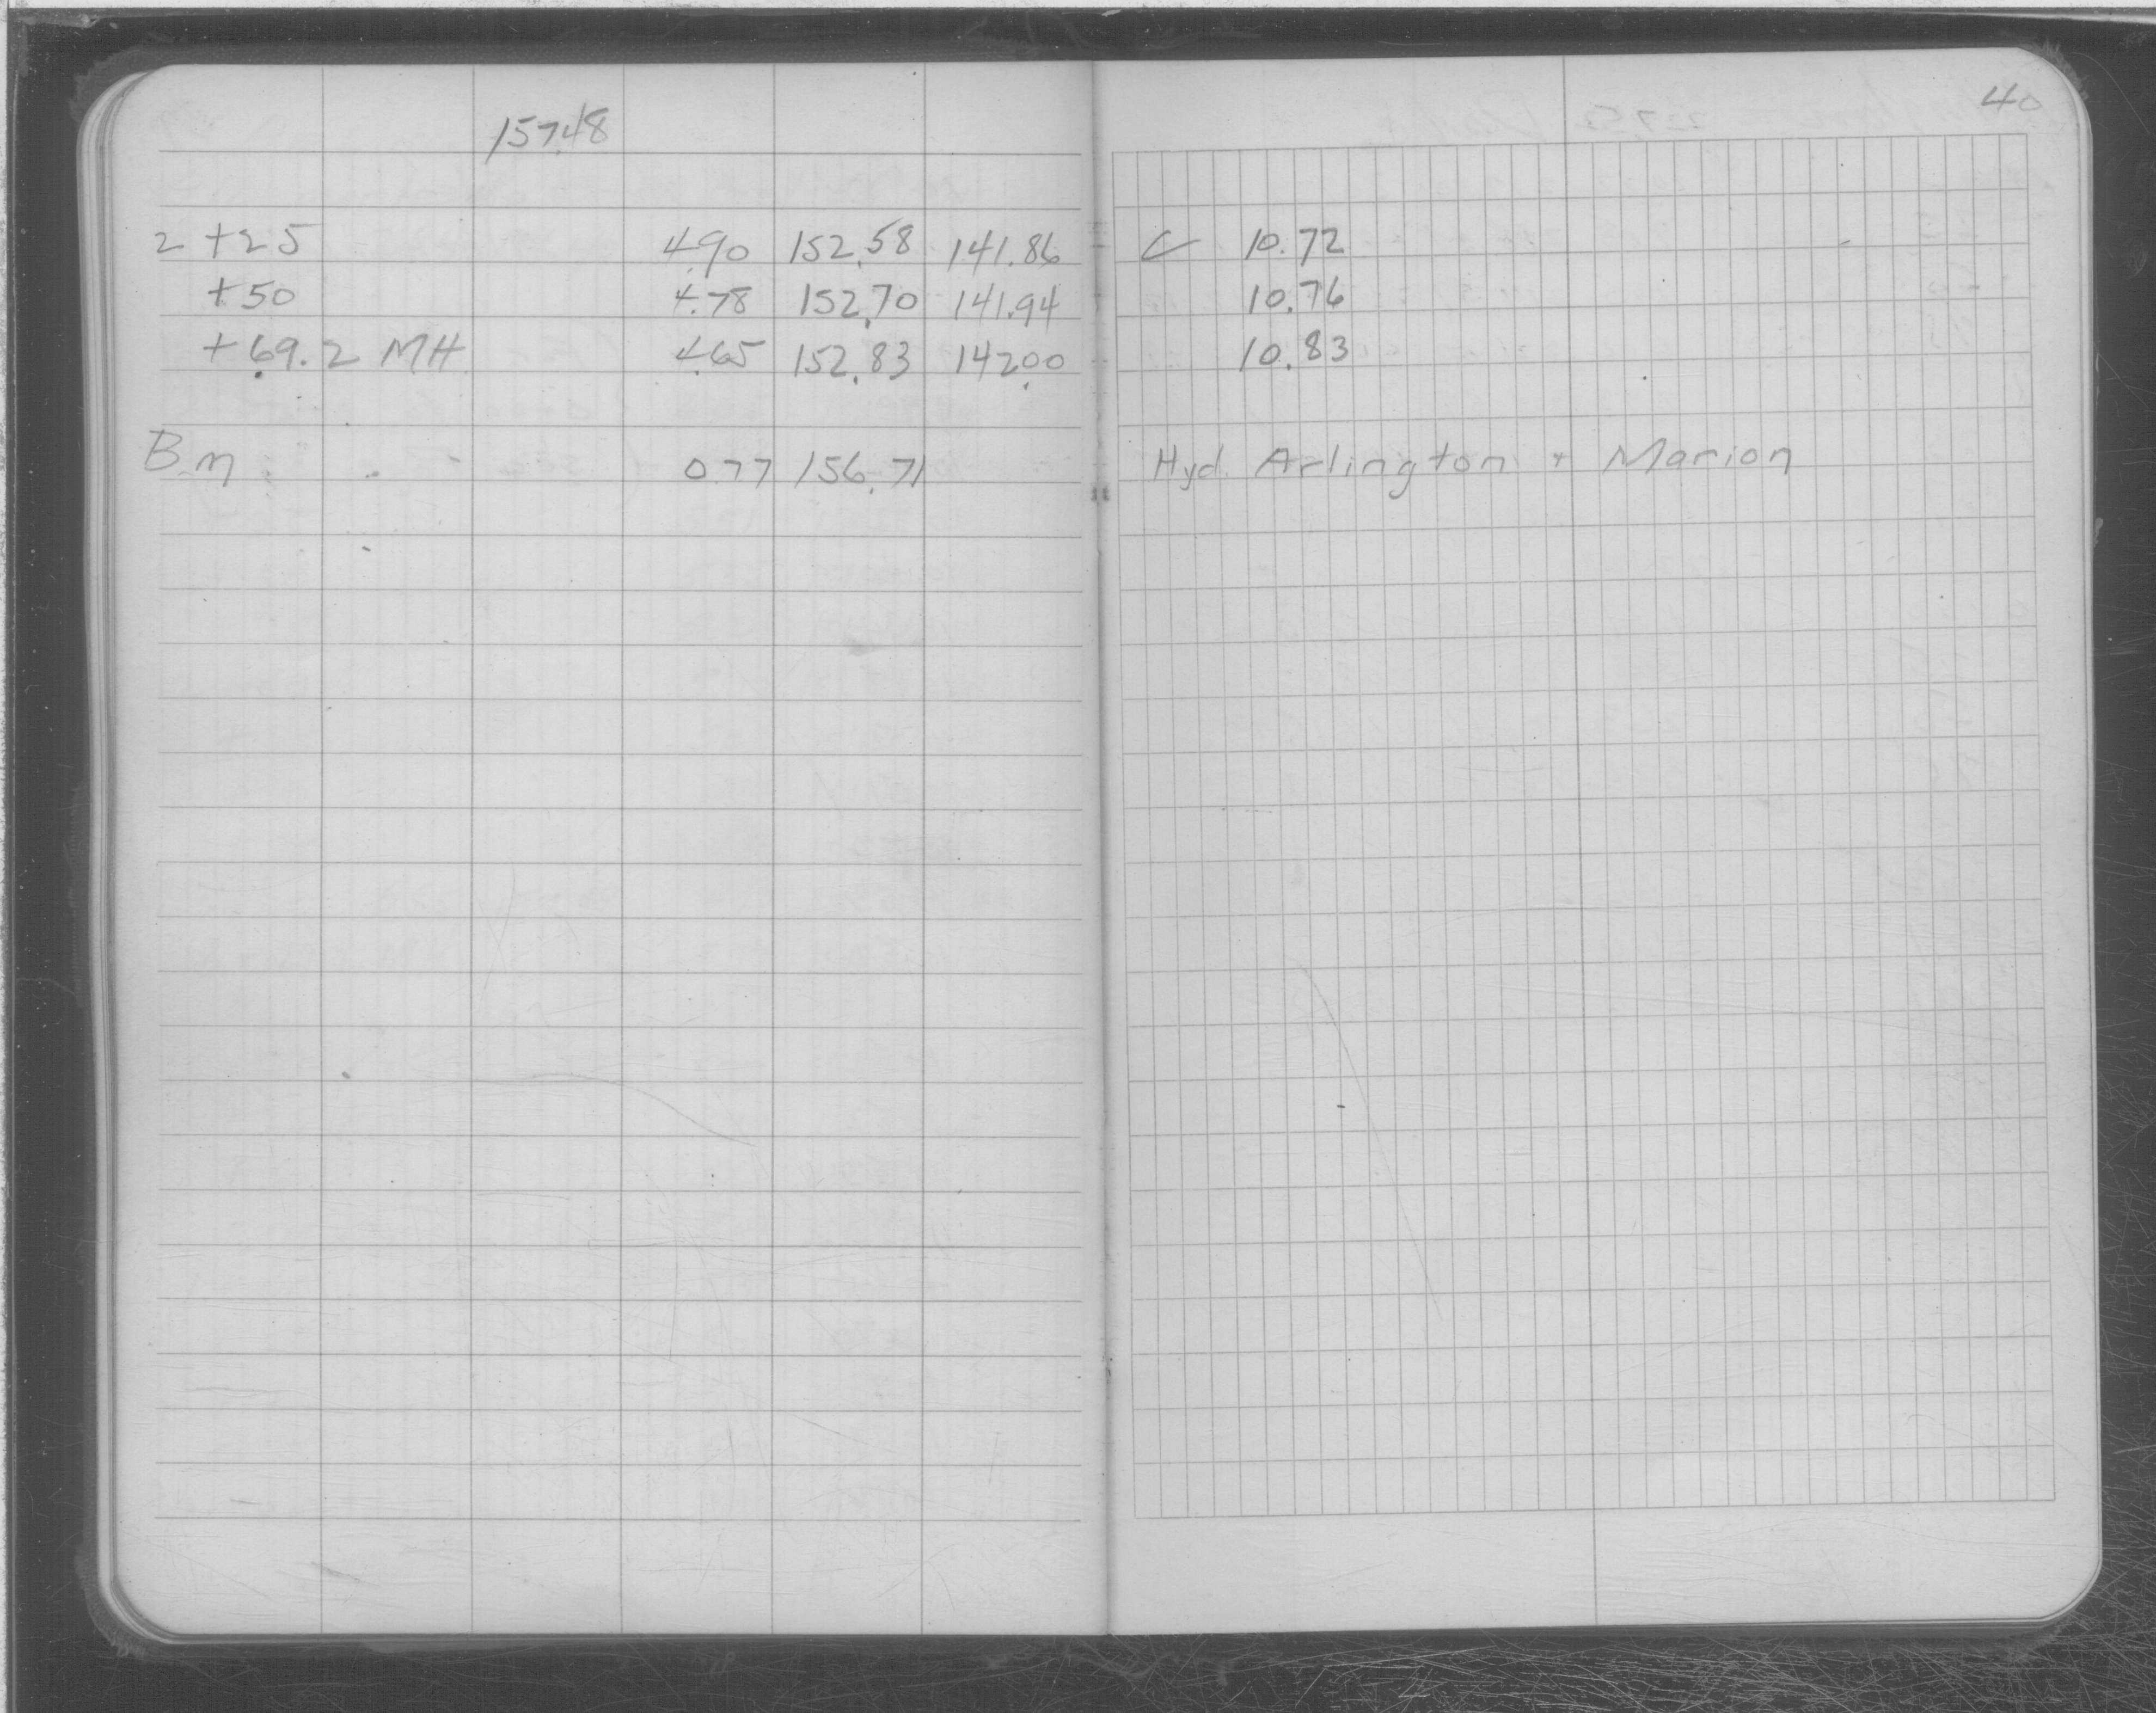 40
157.48
2 +25 4.90 152.58 141.86 C 10.72
+50 4.78 152.70 141.94 10.76
+69.2 MH 4.65 152.83 142.00 10.83
B.m 0.77 156.71 Hyd. Arlington + Marion